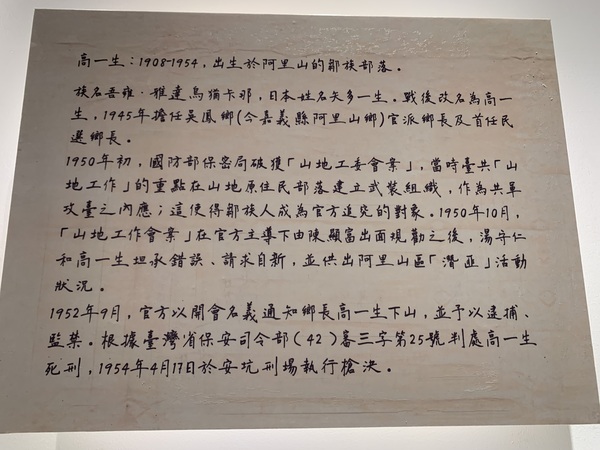 高一生：1908-1954，出生於阿里山的鄒族部落。
族名吾雍·雅達烏猶卡那，日本姓名矢多一生。戰後改名為高一
生，1945年擔任吳鳳鄉（今嘉義縣阿里山鄉）官派鄉長及首任民
選鄉長。
1950年初，國防部保密局破獲「山地工委會案」，當時臺共「山
地工作」的重點在山地原住民部落建立武裝組織，作為共軍
攻臺之內應；這使得鄒族人成為官方追究的對象。1950年10月，
「山地工作會案」在官方主導下由陳顯富出面規勸之後，湯守仁
和高一生坦承錯誤、請求自新，並供出阿里山區「潛匪」活動
狀況。
1952年9月，官方以開會名義通知鄉長高一生下山，並予以逮捕、
監禁。根據臺灣省保安司令部（42）審三字第25號判處高一生
死刑，1954年4月17日於安坑刑場執行槍決。